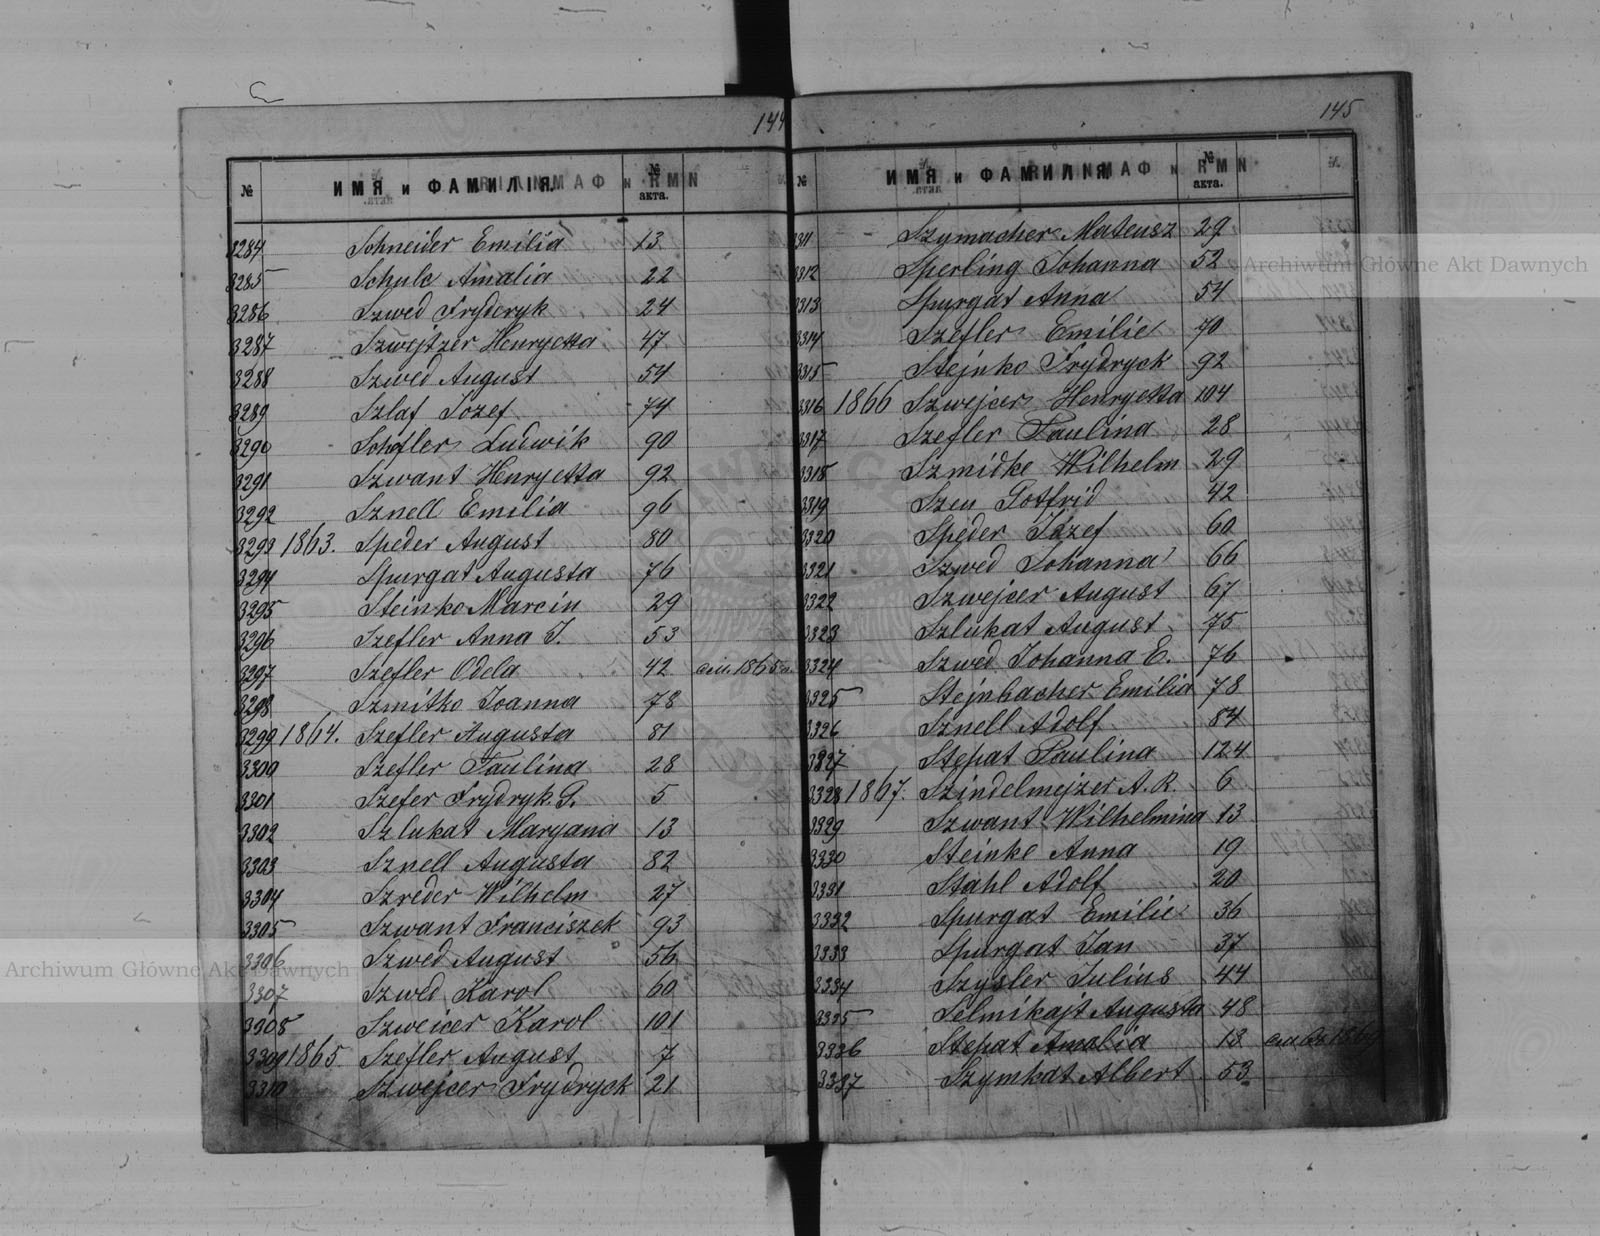 144
№ ИМЯ и ФАМИЛІЯ. № акта.
3284 Schneider Emilia 13
3285 Schulc Amalia 22
3286 Szwed Fryderyk 24
3287 Szwejtzer Henryetta 47
3288 Szwed August 54
3289 Szlaf Jozef 74
3290 Schefler Ludwik 90
3291 Szwant Henryetta 92
3292 Sznell Emilia 96
3293 1863. Speder August 80
3294 Spurgat Augusta 76
3295 Steinko Marcin 29
3296 Szefler Anna J. 53
3297 Szefler Odela 42 см. 1865
3298 Szmitko Joanna 78
3299 1864. Szefler Augusta 81
3300 Szefler Paulina 28
3301 Szefer Frydryk. G. 5
3302 Szlukat Maryana 13
3303 Sznell Augusta 82
3304 Szreder Wilhelm 27
3305 Szwant Franciszek 93
3306 Szwed August 56
3307 Szwed Karol 60
3308 Szweicer Karol 101
3309 1865 Szefler August 7
3310 Szwejcer Frydryck 21
145
№ ИМЯ и ФАМИЛІЯ № акта.
3311 Szymacher Mateusz 29
3312 Sperling Johanna 52
3313 Spurgat Anna 54
3314 Szefler Emilie 70
3315 Stejnko Frydryck 92
3316 1866 Szwejcer Henryetta 104
3317 Szefler Paulina 28
3318 Szmidke Wilhelm 29
3319 Szeu Gotfrid 42
3320 Speder Jozef 60
3321 Szwed Johanna 66
3322 Szwejcer August 67
3323 Szlukat August 75
3324 Szwed Johanna E. 76
3325 Stejnbacher Emilia 78
3326 Sznell Adolf 84
3327 Stepat Paulina 124
3328 1867. Szindelmejzer A. R. 6
3329 Szwant Wilhelmina 13
3330 Steinke Anna 19
3331 Stahl Adolf 20
3332 Spurgat Emilie 36
3333 Spurgat Jan 37
3334 Szysler Julius 44
3335 Selmikajt Augusta 48
3336 Stepat Amalia 13
3337 Szymkat Albert 53
Archiwum Główne Akt Dawnych
Archiwum Główne Akt Dawnych